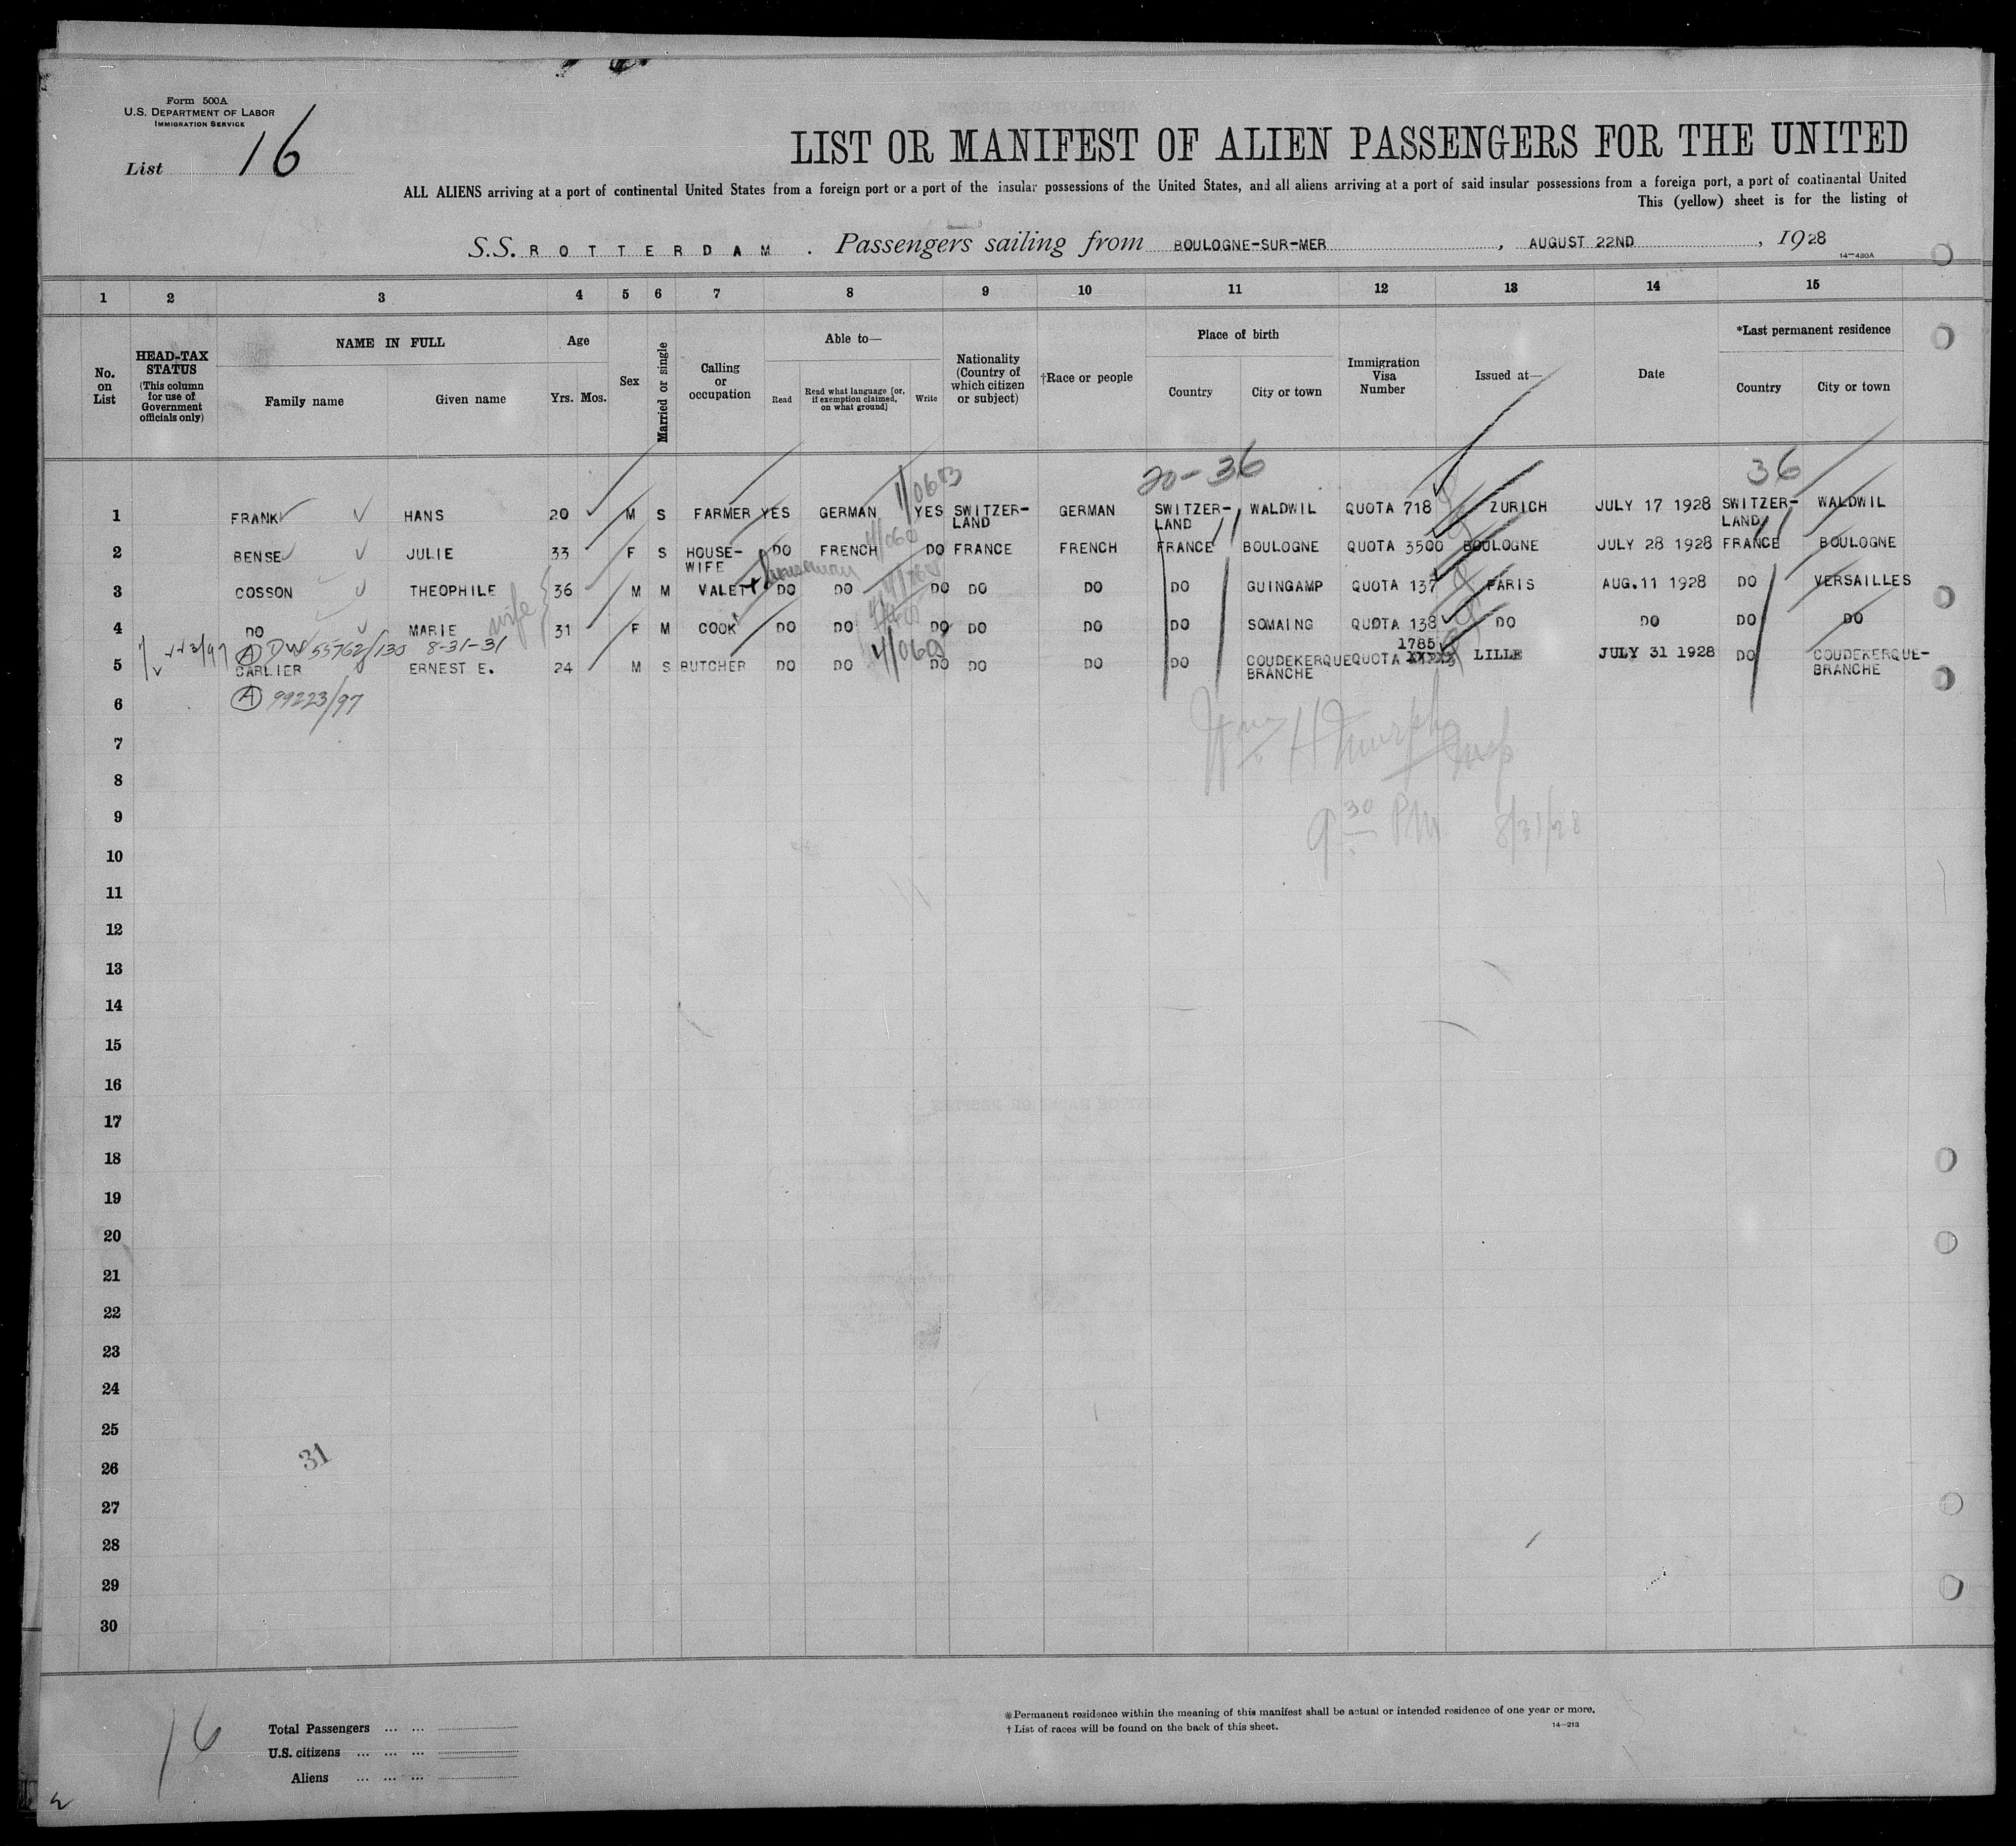 Form 500A
U.S. DEPARTMENT OF LABOR
IMMIGRATION SERVICE
List 16
LIST OR MANIFEST OF ALIEN PASSENGERS FOR THE UNITED
ALL ALIENS arriving at a port of continental United States from a foreign port or a port of the insular possessions of the United States, and all aliens arriving at a port of said insular possessions from a foreign port, a port of continental United
This (yellow) sheet is for the listing of
S.S. ROTTERDAM. Passengers sailing from BOULOGNE-SUR-MER, AUGUST 22ND, 1928
14-430A
1 2 3 4 5 6 7 8 9 10 11 12 13 14 15
No. on List
HEAD-TAX STATUS (This column for use of Government officials only)
NAME IN FULL
Family name Given name
Age
Yrs. Mos.
Sex
Married or single
Calling or occupation
Able to—
Read
Read what language [or, if exemption claimed, on what ground]
Write
Nationality (Country of which citizen or subject)
†Race or people
Place of birth
Country City or town
Immigration Visa Number
Issued at—
Date
*Last permanent residence
Country City or town
20-36 36
1 FRANK HANS 20 M S FARMER YES GERMAN YES SWITZER-LAND GERMAN SWITZER-LAND WALDWIL QUOTA 718 ZURICH JULY 17 1928 SWITZER-LAND WALDWIL
2 BENSE JULIE 33 F S HOUSE-WIFE DO FRENCH DO FRANCE FRENCH FRANCE BOULOGNE QUOTA 3500 BOULOGNE JULY 28 1928 FRANCE BOULOGNE
3 COSSON THEOPHILE 36 M M VALET DO DO DO DO DO DO GUINGAMP QUOTA 137 PARIS AUG.11 1928 DO VERSAILLES
4 DO MARIE wife 31 F M COOK DO DO DO DO DO DO SOMAING QUOTA 138 DO DO DO DO
(A) DW 55762/130 8-31-31
1785
5 CARLIER ERNEST E. 24 M S BUTCHER DO DO DO DO DO DO COUDEKERQUE BRANCHE QUOTA XXXXX LILLE JULY 31 1928 DO COUDEKERQUE-BRANCHE
6 (A) 99223/97
7
8
9 9 30 PM 8/31/28
10
11
12
13
14
15
16
17
18
19
20
21
22
23
24
25
31
26
27
28
29
30
16
Total Passengers ... ...
U.S. citizens ... ... ...
Aliens ... ... ...
*Permanent residence within the meaning of this manifest shall be actual or intended residence of one year or more.
† List of races will be found on the back of this sheet.
14-213